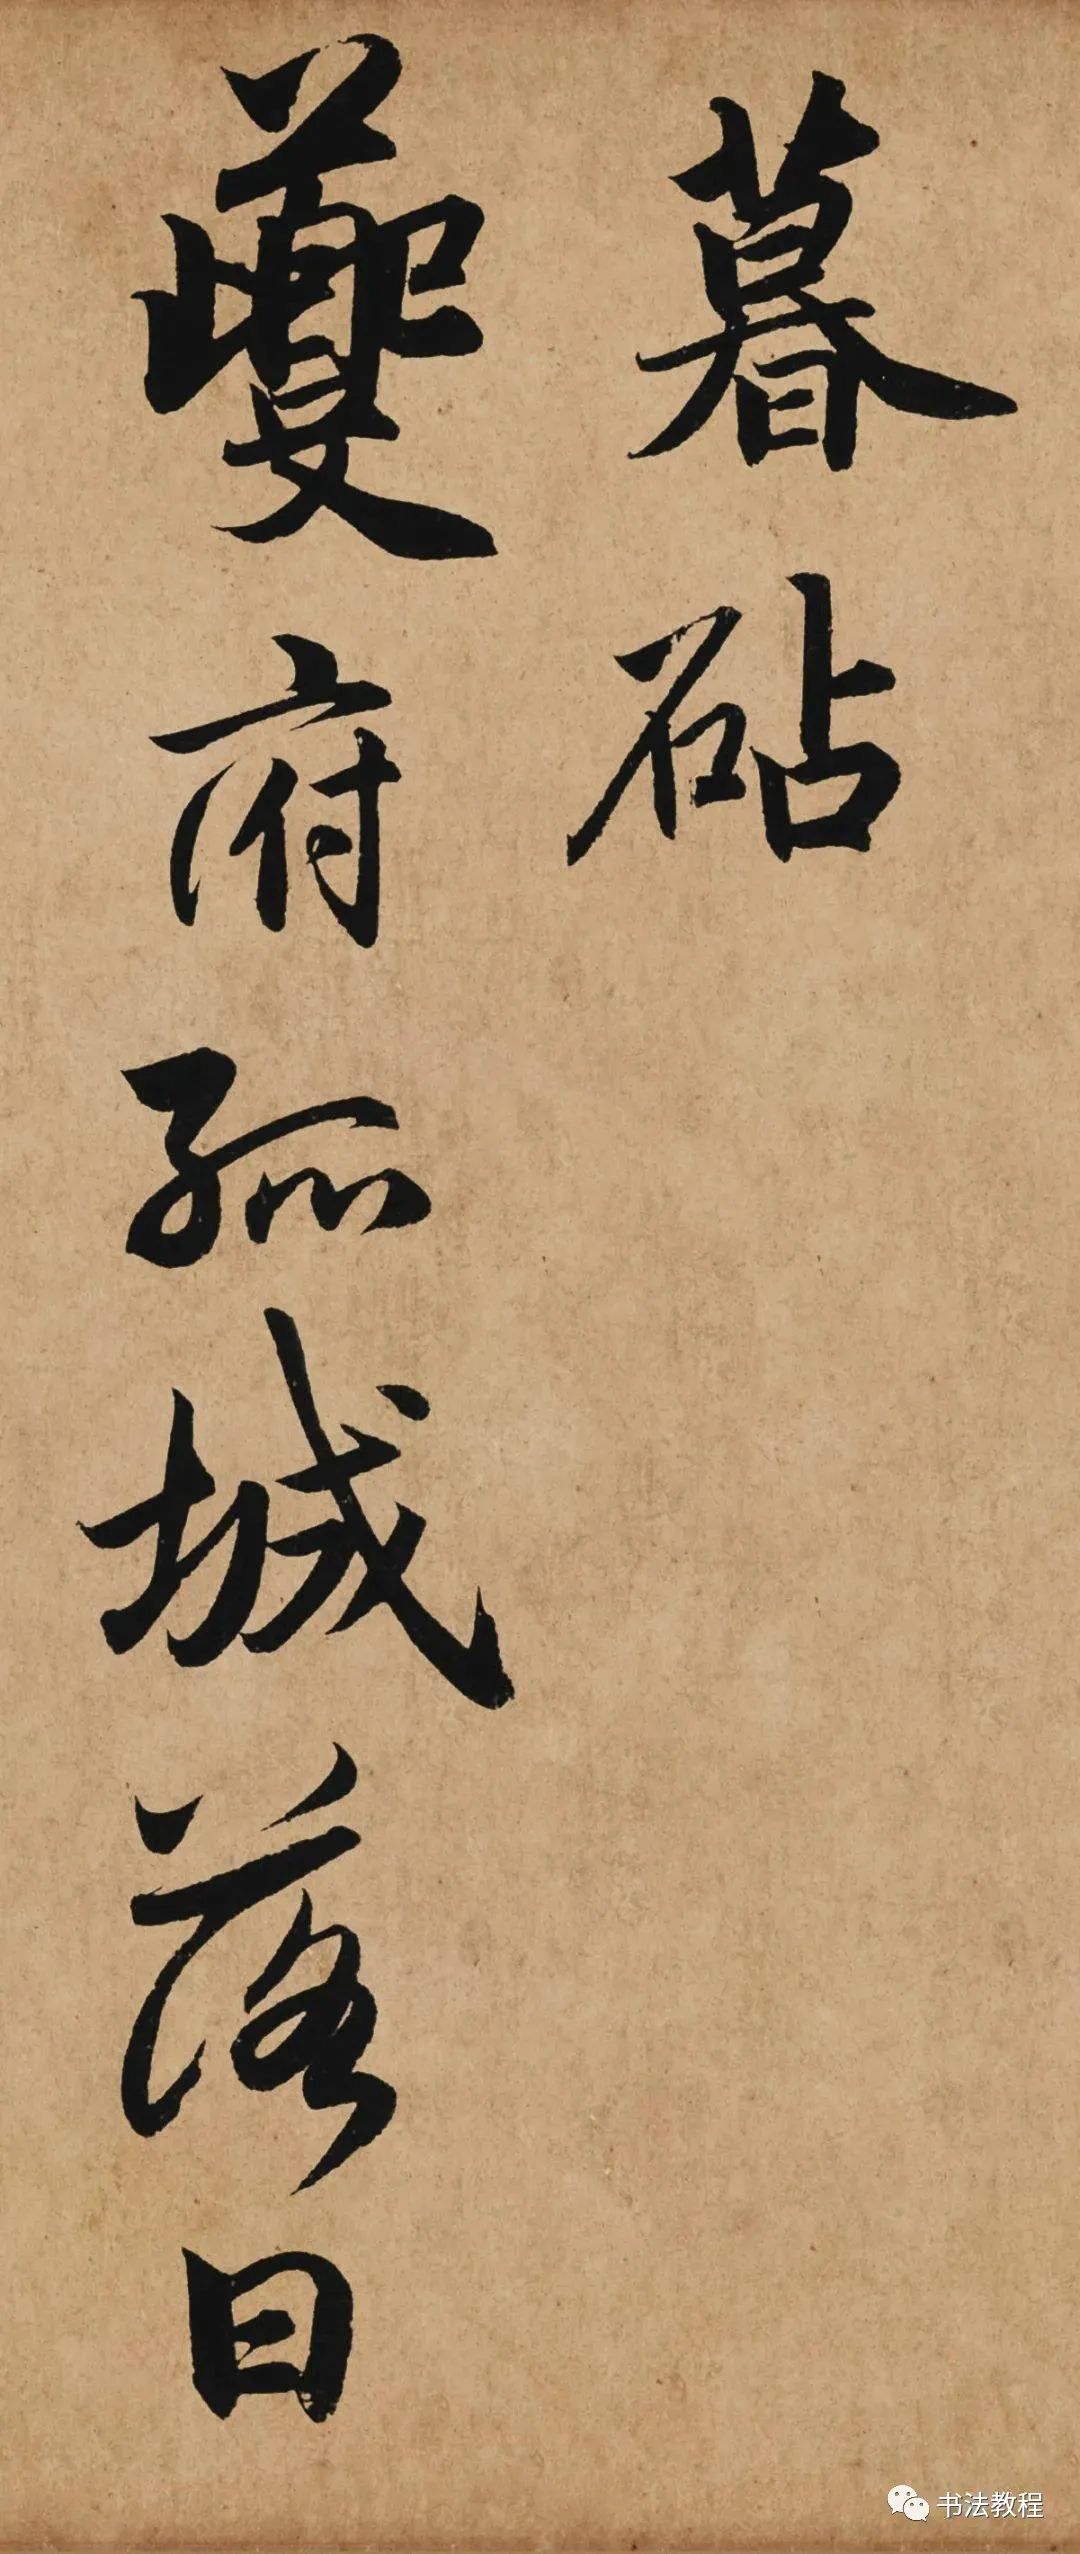 暮砧
夔府孤城落日
书法教程